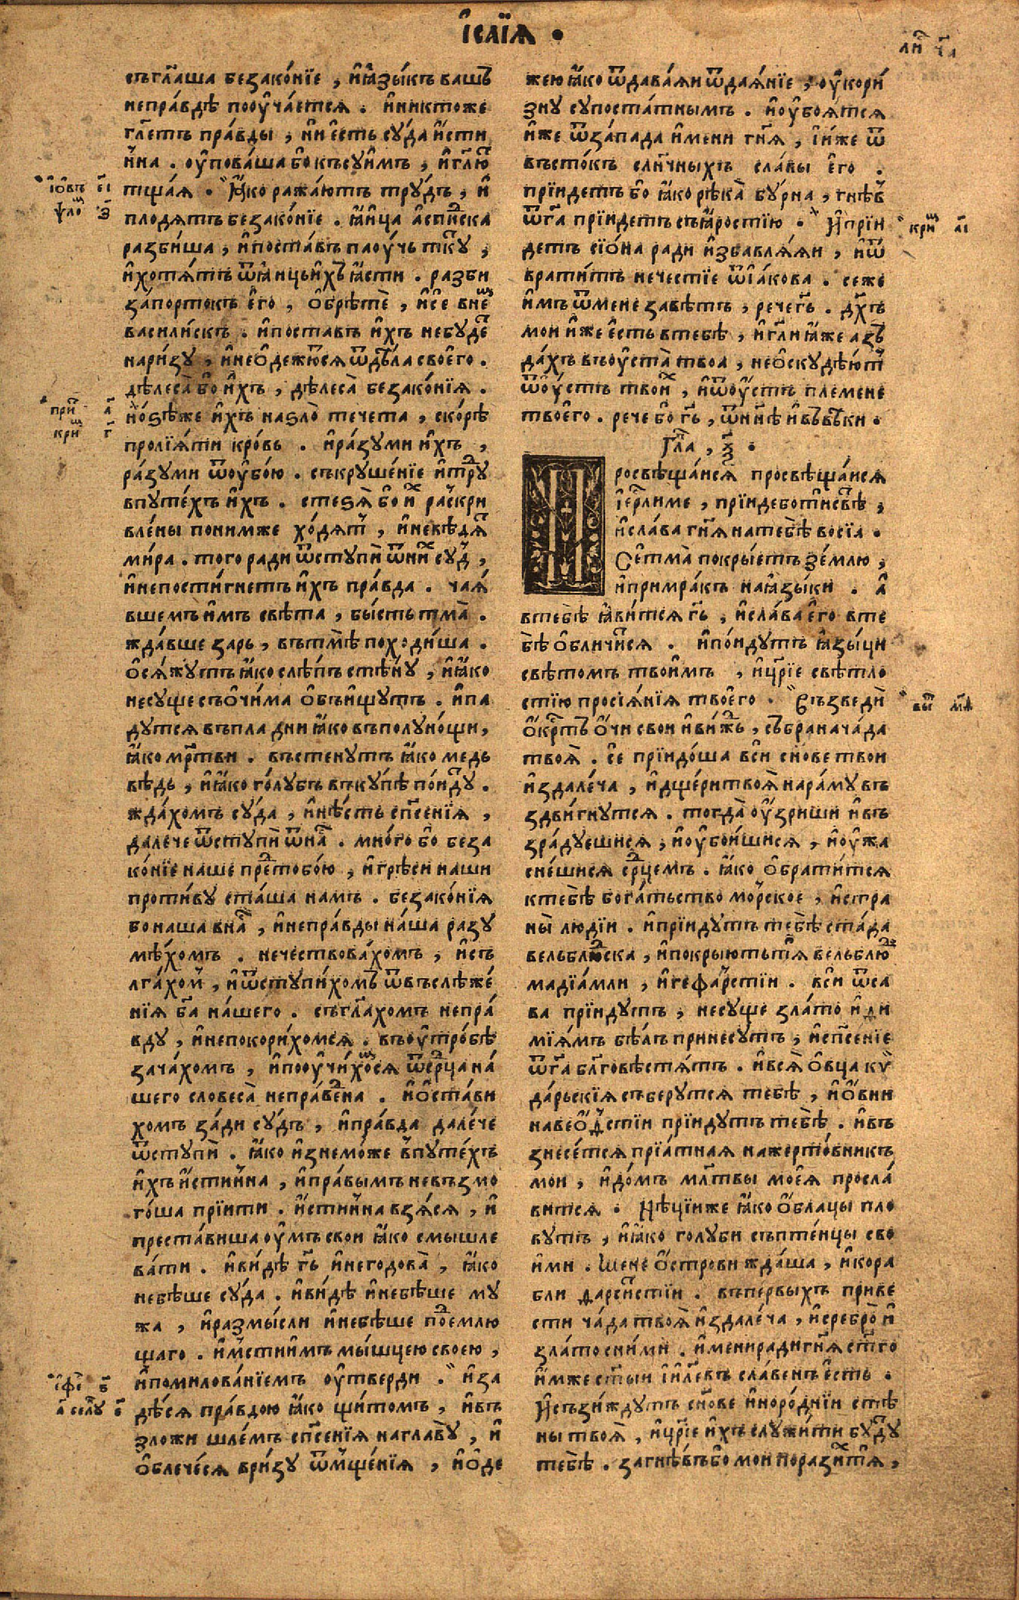 І҆саїꙗ .
ли҇ ча
съгл҃аша беꙁако́нїе , и҆ꙗ҆ꙁы́къ вашь
непра́вдѣ поѹча́етсѧ . и҆никтоже
гл҃етъ пра́вды , ни е҆сть сѹда и҆сти
нна . ѹ҆пова́ша бо къ сѹи҆мъ , и҆гл҃ю
тщаѧ . ꙗ҆́ко ража́ютъ трѹ́дъ , и҆
плодѧ́тъ беꙁако́нїе . ꙗ҆и҆ца а҆спи́дска
раꙁби́ша , и҆поста́въ паѹчь ткѹ ,
и҆хотѧ́тъ ѿꙗ҆и҆цъ и҆хъ ꙗ҆́сти . раꙁби
ꙁа́портокъ е҆го̀ , о҆брѣ́те , и҆се внеⷨ
васили́скъ . и҆поста́въ и҆хъ небѹ́деⷮ
нари́ꙁѹ , и҆нео҆де́жютсѧ ѿдѣ́ла своего̀ .
дѣлеса̀ бо и҆хъ , дѣлеса̀ беꙁако́нїѧ .
но́ꙃѣже и҆хъ наꙃло̀ тече́та , ско́рѣ
пролїѧ́ти кро́вь . и҆ра́ꙁѹми и҆хъ ,
ра́ꙁѹми ѿѹбо́ю . съкрѹше́нїе и҆трѹⷣ
впѹте́хъ и҆хъ . стеꙃѧ̀ бо иⷯ раскри
вле́ны понимже хо́дѧⷮ , и҆невѣ́дѧⷮ
ми́ра . того ради ѿстѹпѝ ѿниⷯ сѹⷣ ,
и҆непости́гнетъ и҆хъ пра́вда . чаѧ́
вшемъ и҆мъ свѣ́та , бы́сть тма̀ .
жда́вше ꙁарь , вътмѣ̀ походи́ша .
о҆сѧ́жѹтъ ꙗ҆́ко слѣ́пъ стѣ́нѹ , и҆ꙗ҆́ко
несѹще съо҆чи́ма о҆бъи́щѹтъ . и҆па
дѹтсѧ въпла дни ꙗ҆́ко въполѹно́щи ,
ꙗ҆́ко мр҃тви . въстенѹтъ ꙗ҆́ко медь
вѣдь , и҆ꙗ҆́ко го́лѹбъ въкѹпѣ по́идѹ .
жда́хомъ сѹда̀ , и҆нѣ́сть спⷭ҇енїѧ ,
дале́че ѿстѹпѝ ѿнаⷭ . мно́го бо беꙁа
ко́нїе наше преⷣтобо́ю , и҆грѣси наши
проти́вѹ ста́ша намъ . беꙁако́нїѧ
бо наша внаⷭ , и҆непра́вды на́ша раꙁѹ
мѣ́хомъ . нече́ствовахомъ , и҆съ
лга́хоⷨ , и҆ѿстѹпи́хомъ ѿвъслѣ́же
нїѧ бг҃а на́шего . съгл҃ахомъ непра́
вдѹ , и҆непокори́хомсѧ . въѹтро́бѣ
ꙁача́хомъ , и҆поѹчи́хоⷨсѧ ѿср҃ца на́
шего словеса̀ непра́веⷣна . и҆о҆ста́ви
хомъ ꙁа́ди сѹ́дъ , и҆пра́вда дале́че
ѿстѹпѝ . ꙗ҆́ко и҆ꙁнемо́же впѹте́хъ
и҆хъ и҆́стинна , и҆пра́вымъ невъꙁмо
го́ша прїити . и҆́стинна вꙁѧ́сѧ , и҆
преста́виша ѹ҆мъ свои ꙗ҆́ко смы́шле
ва́ти . и҆ви́дѣ гь҃ и҆негодова̀ , ꙗ҆́ко
небѣ́ше сѹда̀ . и҆ви́дѣ и҆небѣ́ше мѹ
жа , и҆раꙁмы́сли и҆небѣ́ше поⷣемлю
щаго . и҆мⷭ҇тиимъ мы́шцею своею ,
и҆помилова́нїемъ ѹ҆тверди . и҆ꙁа
дѣ́сѧ пра́вдою ꙗ҆́ко щи́томъ , и҆въ
ꙁложи шле́мъ спⷭ҇енїѧ наглавѹ̀ , и҆
о҆блече́сѧ врі́ꙁѹ ѿмще́нїѧ , и҆о҆де
жею ꙗ҆́ко ѿдава́ѧи ѿдаѧ́нїе , ѹ҆кори́
ꙁнѹ сѹпоста́тнымъ . и҆ѹбоѧ́тсѧ
и҆же ѿꙁапада и҆мени гн҃ѧ , і҆и҆же ѿ
въсто́къ слн҃чныхъ сла́вы е҆го̀ .
прїидетъ бо ꙗ҆́ко рѣка̀ бѹрна , гнѣ́въ
ѿга҃ прїидетъ съꙗ҆́ростїю . И҆прїи
детъ сїо́на ради и҆ꙁбавлѧ́ѧи , и҆ѿ
врати́тъ нече́стїе ѿі҆а́кова . сеже
и҆мъ ѿмене ꙁавѣ́тъ , рече гь҃ . дх҃ъ
мои и҆же е҆сть втебѣ̀ , и҆гл҃и ꙗ҆́же аꙁъ
да́хъ въѹста̀ твоа , нео҆скѹдѣ́юⷮ
ѿѹстъ твоиⷯ , и҆ѿѹстъ племене
твоего̀ . рече бо гь҃ , ѿнн҃ѣ и҆вѣ́вѣки .
Гл҃а , ѯ҃ .
Просвѣща́исѧ просвѣща́исѧ
і҆ерⷭ҇лиме , прїиде бо ти свѣⷮ ,
и҆сла́ва гн҃ѧ на тебѣ̀ восїа .
Се тма̀ покры́етъ ꙁе́млю ,
и҆примра́къ наꙗ҆ꙁы́ки . а҆
втебѣ̀ ꙗ҆ви́тсѧ гь҃ , и҆сла́ва е҆го̀ вте
бѣ̀ о҆бличи́тсѧ . и҆по́идѹтъ ꙗ҆ꙁы́ци
свѣ́томъ твои́мъ , и҆цр҃їе свѣ́тло
стїю просїѧ́нїѧ твоего̀ . Въꙁведѝ
ѻ҆́крⷭ҇тъ ѻ҆́чи свои и҆ви́жⷣь , събрана ча́да
твоѧ̀ . се прїидо́ша вси сн҃ове твои
и҆ꙁдале́ча , и҆дще́ри твоѧ̀ нара́мѹ въ
ꙁдви́гнѹтсѧ . тогда̀ ѹ҆ꙁриши и҆въ
ꙁра́дѹешисѧ , и҆ѹбои́шисѧ , и҆ѹ́жа
сне́шисѧ ср҃цемъ . ꙗ҆́ко о҆брати́тсѧ
ктебѣ̀ бога́тьство мо́рское , и҆стра
ны̀ людїи . и҆прїидѹтъ тебѣ̀ ста́да
вельблю́дска , и҆покры́ютътѧ вельблюⷣ
мадїа́мли , и҆гефа́рстїи . вси ѿса
ва прїидѹтъ , несѹще ꙁла́то и҆ди
мїѧ́мъ бѣлъ принесѹ́тъ , и҆спⷭ҇енїе
ѿга҃ блг҃овѣстѧ́тъ . и҆всѧ̀ о҆вца кѹ
да́рьскїѧ събе́рѹтсѧ тебѣ̀ , и҆о҆́вни
навео҆́дстїи прїидѹтъ тебѣ̀ . и҆въ
ꙁнесе́тсѧ прїа́тнаꙗ наже́ртовникъ
мои , и҆до́мъ мл҃твы моеѧ̀ просла́
витсѧ . Нѣ́цїиже ꙗ҆́ко о҆́блацы пло
вѹтъ , и҆ꙗ҆́ко голѹби съпте́нцы сво
и́ми . мене о҆́строви жда́ша , и҆кора
бли ѳарси́стїи . въпе́рвыхъ приве
сти ча́да твоѧ̀ и҆ꙁдале́ча , и҆сребро̀ и҆
ꙁла́то сни́ми . и҆мени ради гн҃ѧ ст҃го
и҆мже ст҃ыи і҆и҃левъ славенъ е҆сть .
И҆съꙁи́ждѹтъ сн҃ове и҆норо́днїи стѣ
ны твоѧ̀ , и҆цр҃їе и҆хъ слѹжи́ти бѹⷣдѹ
тебѣ̀ . ꙁагнѣ́въ бо мои пораꙁи́хъ тѧ ,
і҆ѡ҆въ еі
ѱло҇ ꙃ
при҇ а
кри҇ г
і҆фі҇ ѕ
а҆ селѹ е
кри҇ аі
вы҇ мѳ